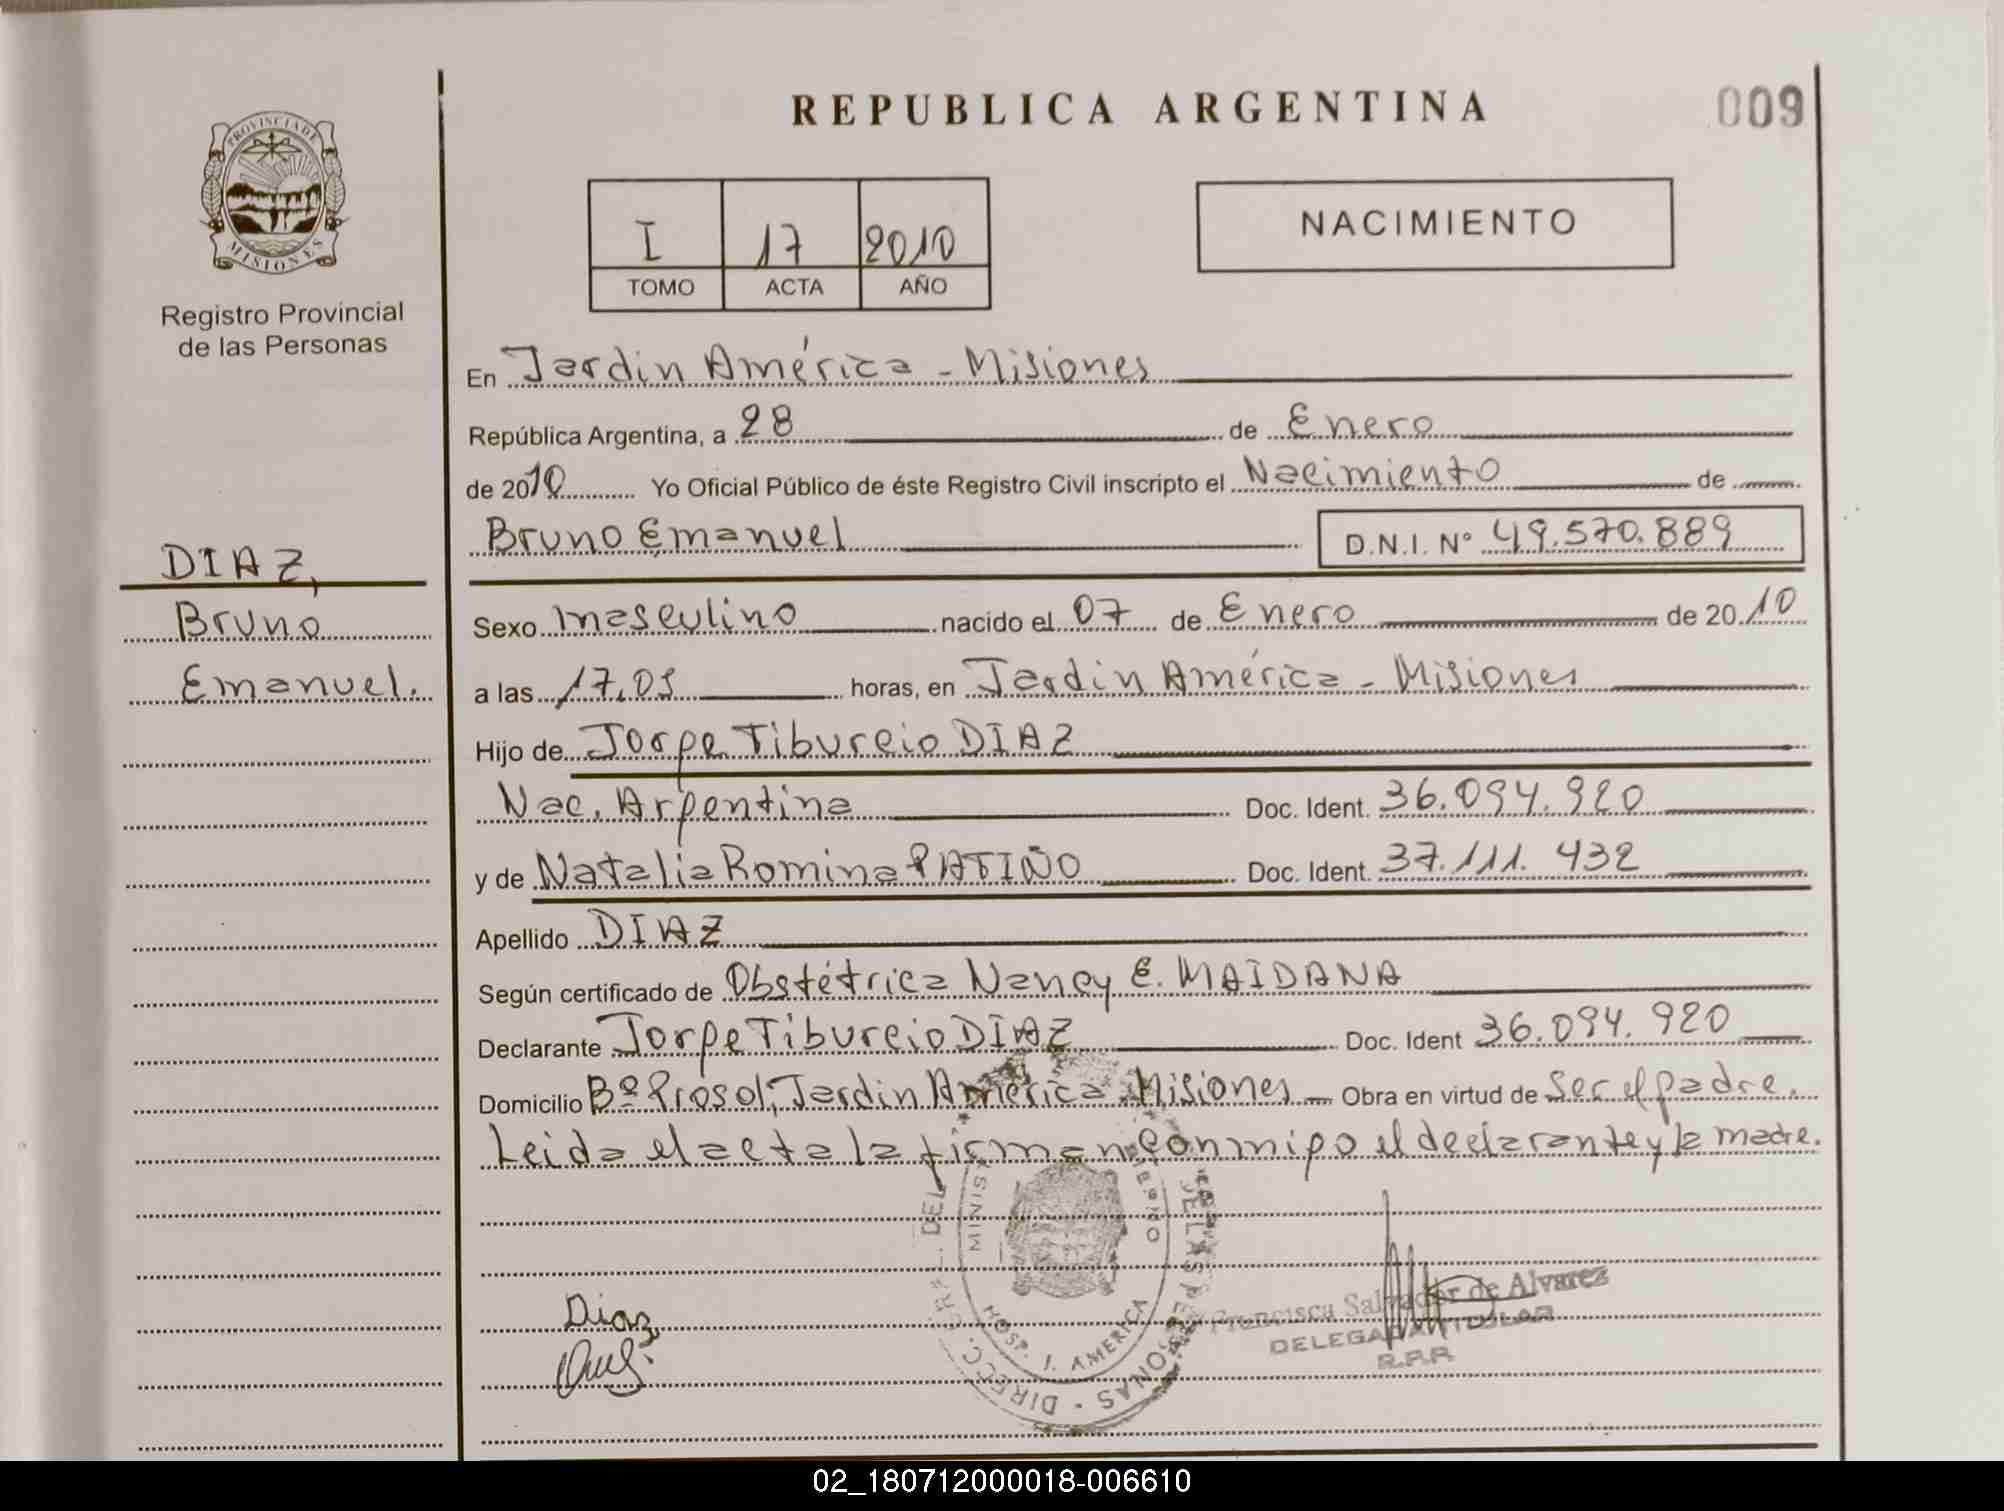 REPUBLICA ARGENTINA
009
PROVINCIA DE
MISIONES
Registro Provincial
de las Personas
I 17 2010
TOMO ACTA AÑO
NACIMIENTO
En Jardin América - Misiones
República Argentina, a 28 de Enero
de 2010 Yo Oficial Público de éste Registro Civil inscripto el Nacimiento de
Bruno Emanuel D.N.I. Nº 49.570.889
DIAZ,
Bruno
Emanuel.
Sexo masculino nacido el 07 de Enero de 2010
a las 17,05 horas, en Jardin América - Misiones
Hijo de Jorge Tiburcio DIAZ
Nac. Argentina Doc. Ident. 36.094.920
y de Natalia Romina PATIÑO Doc. Ident. 37.111.432
Apellido DIAZ
Según certificado de Obstétrica Nancy E. MAIDANA
Declarante Jorge Tiburcio DIAZ Doc. Ident 36.094.920
Domicilio Bº Prosol, Jardin América Misiones Obra en virtud de Ser el padre.
Leida el acta la firman conmigo el declarante y la madre.
Diaz
Francisca Salvador de Alvarez
DELEGADA TITULAR
R.P.P.
HOSP. J. AMERICA
02_180712000018-006610